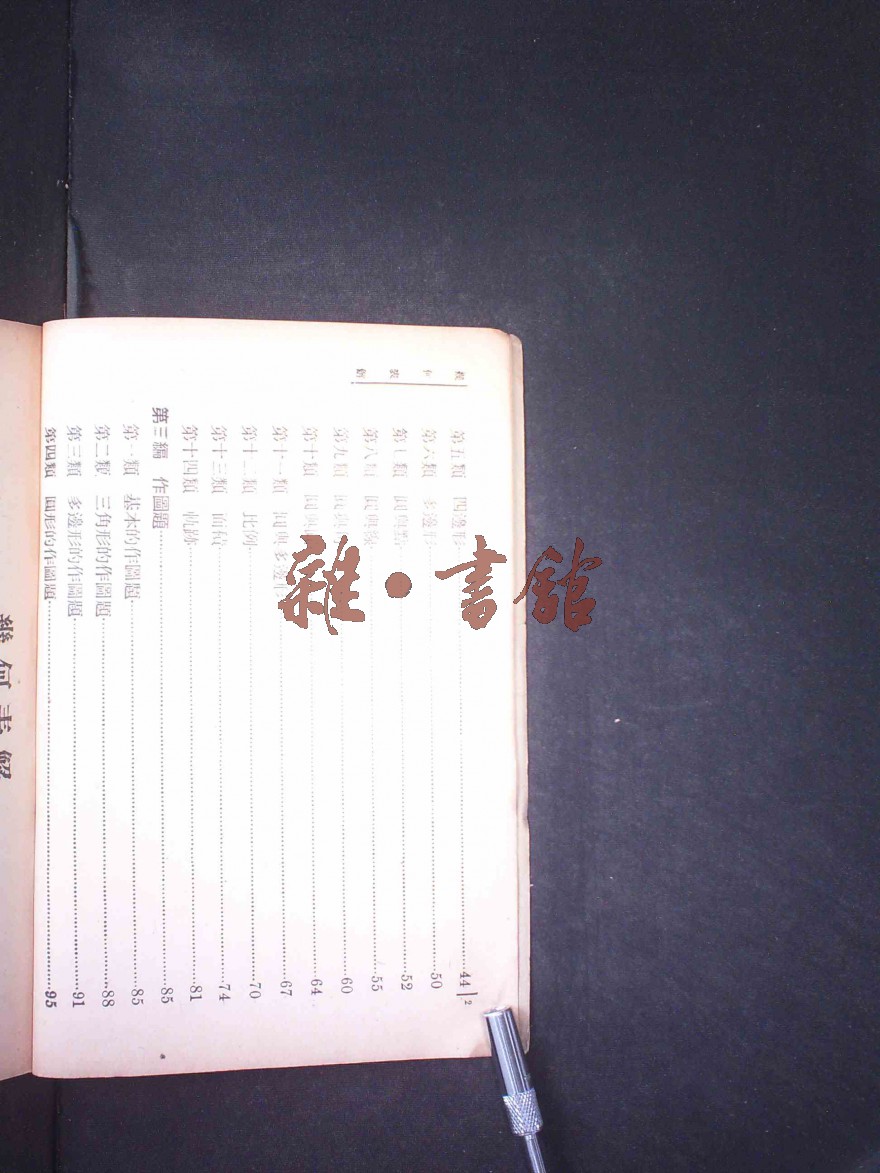 2
第五類 四邊形 44
第六類 多邊形 50
第七類 52
第八類 55
第九類 60
第十類 64
第十一類 圓與多邊形 67
第十二類 比例 70
第十三類 面積 74
第十四類 軌跡 81
第三編 作圖題 85
第一類 基本的作圖題 85
第二類 三角形的作圖題 88
第三類 多邊形的作圖題 91
第四類 圓形的作圖題 95
雜·書館